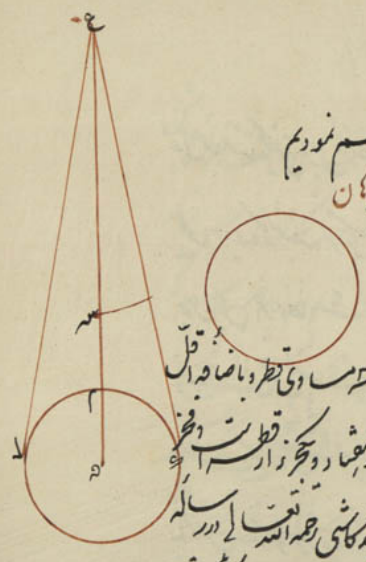 ع
سم نمودیم
هان
س
مساوی قطر و باضافه اقلّ
م
هفتاد و یکجزء از قطر است و فخر
ه
کاشی رحمه الله تعالی در رساله